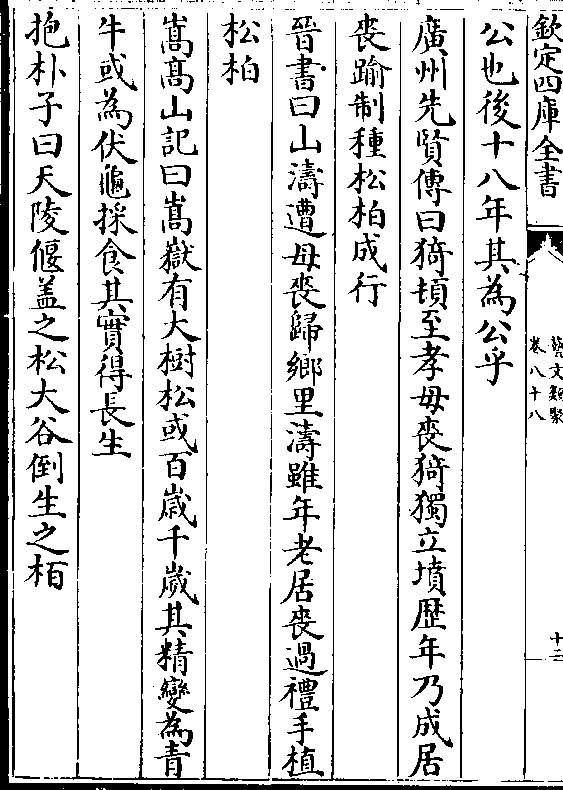 欽定四庫全書
藝文類聚
卷八十八
十二
公也後十八年其為公乎
廣州先賢傳曰猗頓至孝母喪猗獨立墳歴年乃成居
喪踰制種松柏成行
晉書曰山濤遭母喪歸鄉里濤雖年老居喪過禮手植
松柏
嵩髙山記曰嵩嶽有大樹松或百歲千歲其精變為青
牛或為伏龜採食其實得長生
抱朴子曰天陵偃盖之松大谷倒生之栢